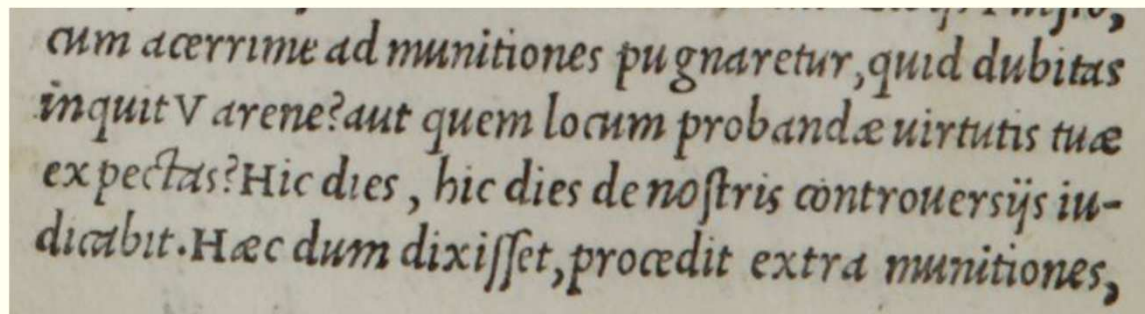 cum acerrime ad munitiones pugnaretur, quid dubitas
inquit Varene? aut quem locum probandæ uirtutis tuæ
expectas? Hic dies, hic dies de noſtris controuersijs iu-
dicabit. Hæc dum dixiſſet, procedit extra munitiones,